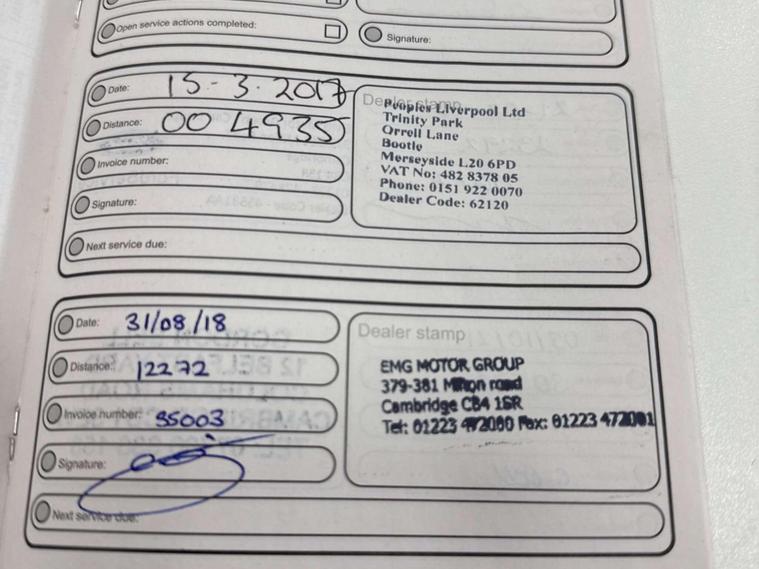 Open service actions completed:
Signature:
Date: 15-3-2017
Distance: 004935
Invoice number:
Signature:
Next service due:
Dealer stamp
Peoples Liverpool Ltd
Trinity Park
Orrell Lane
Bootle
Merseyside L20 6PD
VAT No: 482 8378 05
Phone: 0151 922 0070
Dealer Code: 62120
Date: 31/08/18
Distance: 12272
Invoice number: 95003
Signature:
Next service due:
Dealer stamp
EMG MOTOR GROUP
379-381 Milton road
Cambridge CB4 1SR
Tel: 01223 472060 Fax: 01223 472001